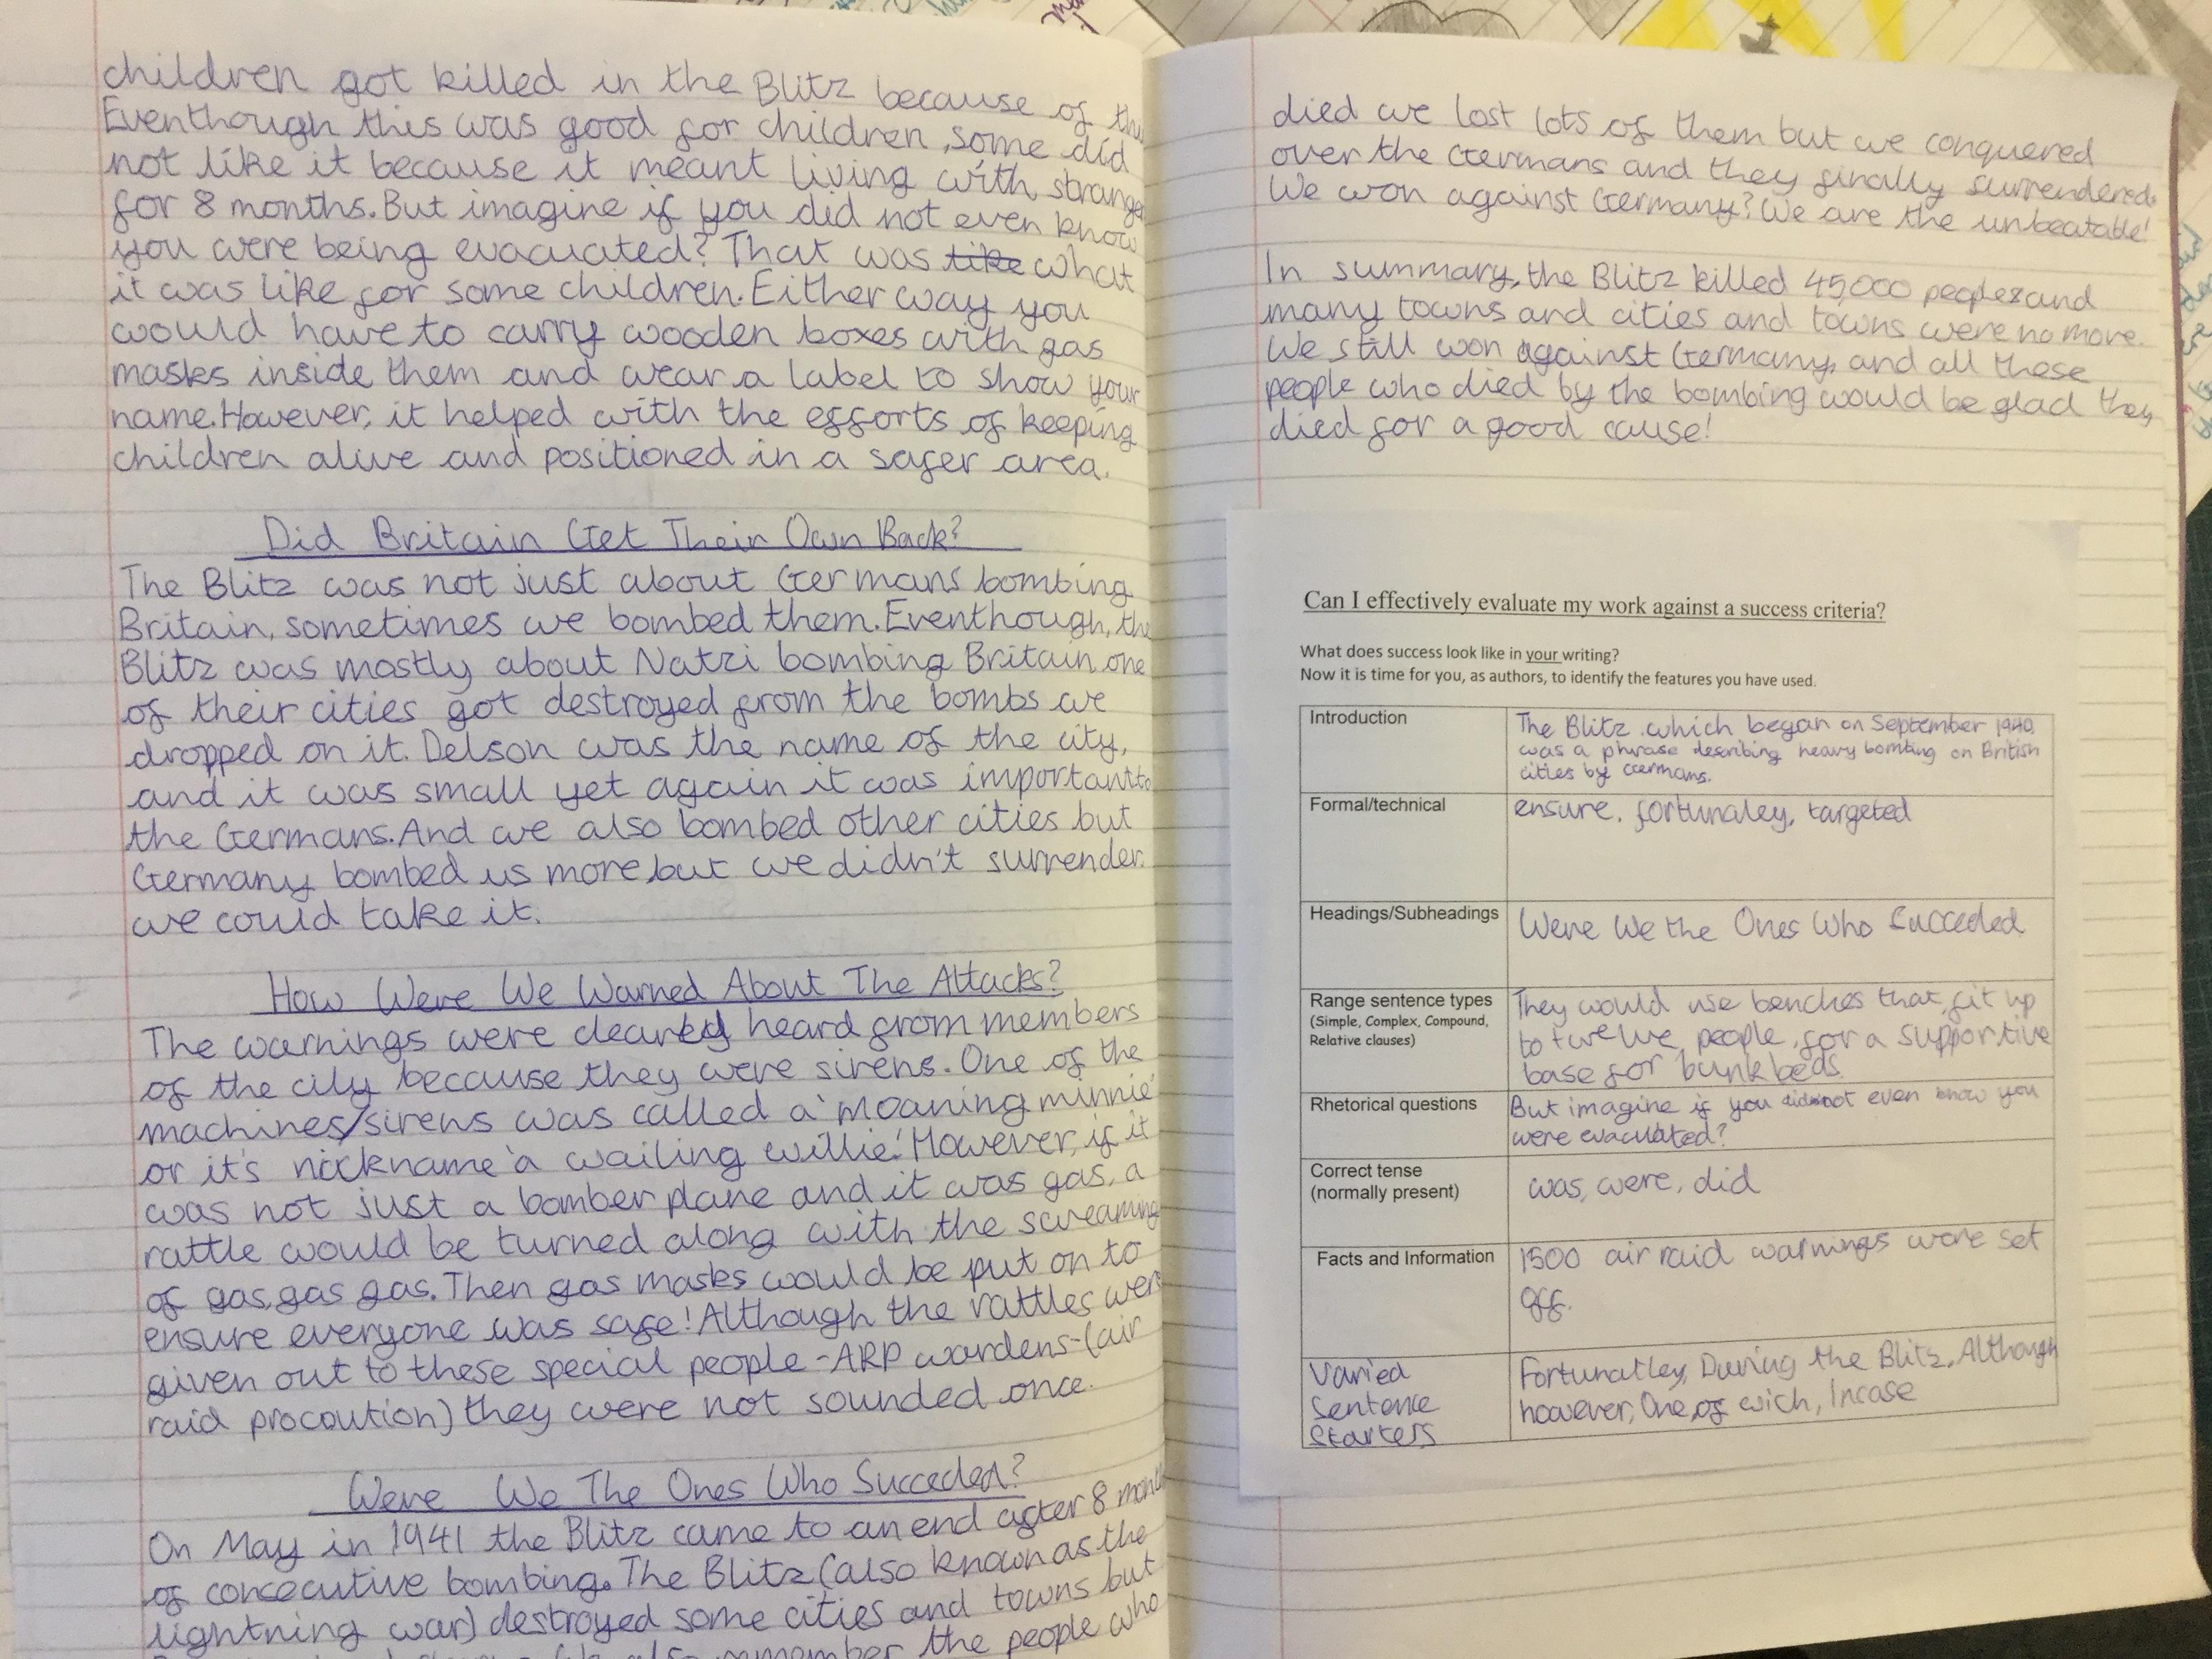 children got killed in the Blitz because of
Eventhough this was good for children, some did
not like it because it meant living with
for 8 months. But imagine if you did not even know
you were being evacuated? That was like what
it was like for some children. Either way you
would have to carry wooden boxes with gas
masks inside them and wear a label to show your
name. However, it helped with the efforts of keeping
children alive and positioned in a safer area.
Did Britain Get Their Own Back?
The Blitz was not just about Germans bombing
Britain, sometimes we bombed them. Eventhough, the
Blitz was mostly about Natzi bombing Britain one
of their cities got destroyed from the bombs we
dropped on it. Delson was the name of the city,
and it was small yet again it was important to
the Germans. And we also bombed other cities but
Germany bombed us more, but we didn't surrender.
we could take it.
How Were We Warned About The Attacks?
The warnings were heard from members
of the city because they were sirens. One of the
machines/sirens was called a 'moaning minnie'
or it's nickname 'a wailing willie'! However, if it
was not just a bomber plane and it was gas, a
rattle would be turned along with the screaming
of gas, gas gas. Then gas masks would be put on to
ensure everyone was safe! Although the rattles were
given out to these special people - ARP wardens - (air
raid procoution) they were not sounded once.
Were We The Ones Who Succeded?
On May in 1941 the Blitz came to an end after 8
of consecutive bombing. The Blitz (also known as the
lightning war) destroyed some cities and towns but
also remember the people who
died we lost lots of them but we conquered
over the Germans and they finally surrendered.
We won against Germany? We are the unbeatable!
In summary, the Blitz killed 45,000 people and
many towns and cities and towns were no more.
We still won against Germany, and all these
people who died by the bombing would be glad they
died for a good cause!
Can I effectively evaluate my work against a success criteria?
What does success look like in your writing?
Now it is time for you, as authors, to identify the features you have used.
Introduction
The Blitz, which began on September 1940,
was a phrase describing heavy bombing on British
cities by Germans.
Formal/technical
ensure, fortunaley, targeted
Headings/Subheadings
Were We the Ones Who Succeded
Range sentence types
(Simple, Complex, Compound,
Relative clauses)
They would use benches that, fit up
to twelve people, for a supportive
base for bunk beds.
Rhetorical questions
But imagine if you did not even know you
were evacuated?
Correct tense
(normally present)
was, were, did
Facts and Information
1500 air raid warnings were set
off.
Varied
Sentence
Starters
Fortunatley, During the Blitz, Although
however, One of wich, Incase